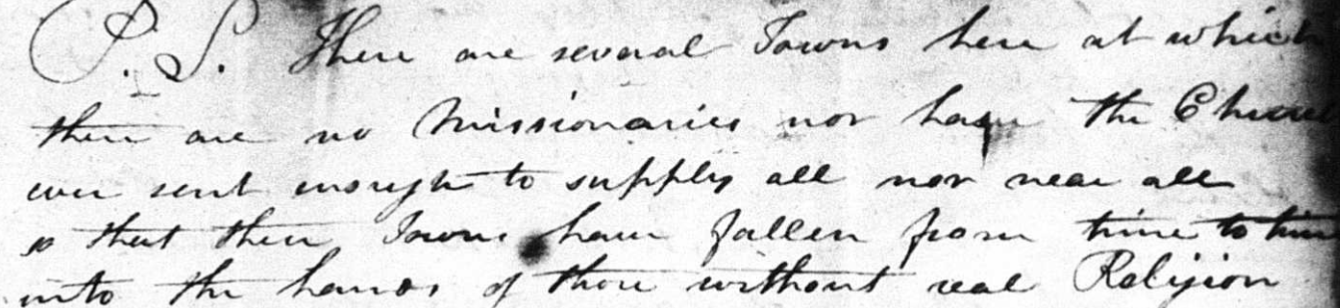 P. S. There are several Towns here at which
there are no Missionaries nor have the Church
ever sent enough to supply all nor near all
so that these Towns have fallen from time to time
into the hands of those without real Religion